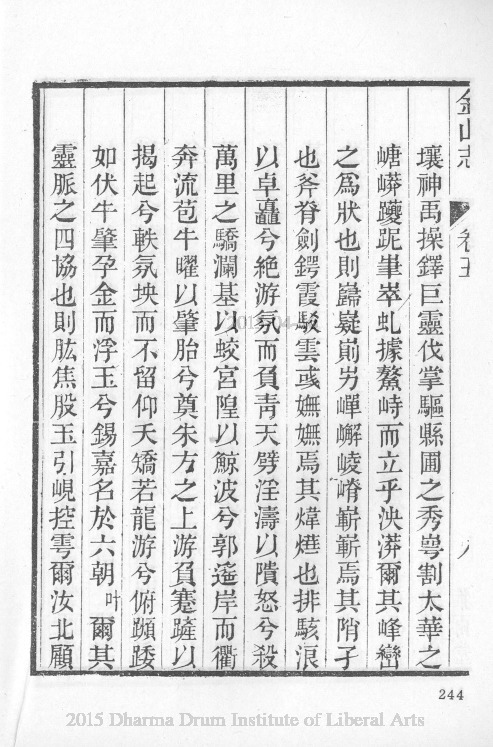 金山志 卷五 八
壤神禹操鐸巨靈伐掌驅縣圃之秀崿割太華之
嵣㟐躨跜崋崒虬據鰲峙而立乎泱漭爾其峰巒
之爲狀也則巋嶷崱屴嶂嶰崚嶒嶄嶄焉其陗孑
也斧脊劍鍔霞駁雲彧嫵嫵焉其煒爗也排駭浪
以卓矗兮絶游氛而負青天劈淫濤以隤怒兮殺
萬里之驕瀾基以蛟宮隍以鯨波兮郭遥岸而衢
奔流苞牛曜以肇胎兮奠朱方之上游負蹇嵼以
揭起兮軼氛埃而不留仰夭矯若龍游兮俯蹞踒
如伏牛肇孕金而浮玉兮錫嘉名於六朝叶爾其
靈脈之四協也則肱焦股玉引峴控雩爾汝北顧
244
2015 Dharma Drum Institute of Liberal Arts